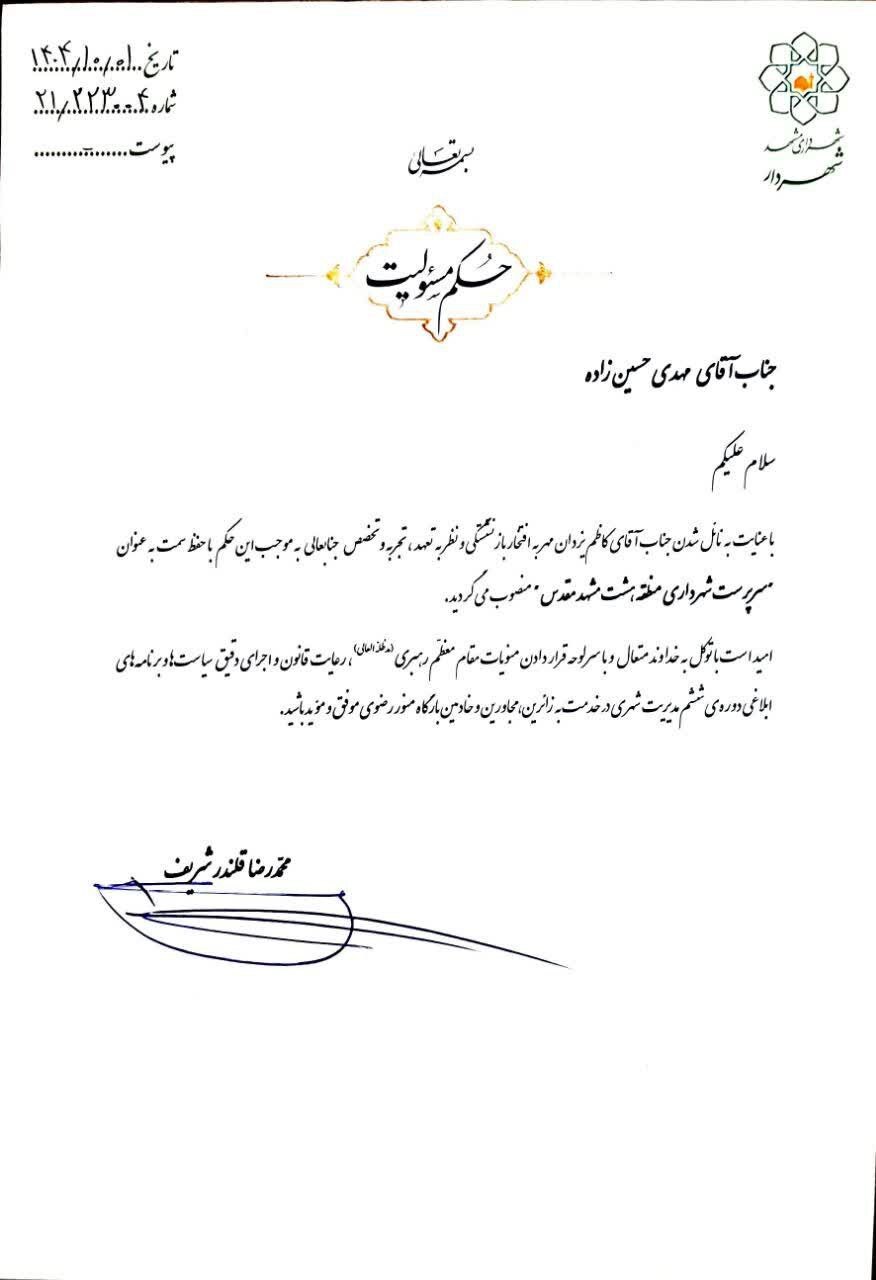 تاریخ ۱۴۰۴/۱۰/۰۱
شماره ۲۱/۲۲۳۰۰۴
پیوست –
شهرداری مشهد
شهردار
بسمه تعالی
حکم مسئولیت
جناب آقای مهدی حسین زاده
سلام علیکم
با عنایت به نائل شدن جناب آقای کاظم یزدان مهر به افتخار بازنشستگی و نظر به تعهد، تجربه و تخصص جنابعالی به موجب این حکم با حفظ سمت به عنوان
"سرپرست شهرداری منطقه هشت مشهد مقدس" منصوب می گردید.
امید است با توکل به خداوند متعال و با سرلوحه قرار دادن منویات مقام معظم رهبری (مدظله العالی)، رعایت قانون و اجرای دقیق سیاست ها و برنامه های
ابلاغی دوره ی ششم مدیریت شهری در خدمت به زائرین، مجاورین و خادمین بارگاه منور رضوی موفق و مؤید باشید.
محمدرضا قلندر شریف